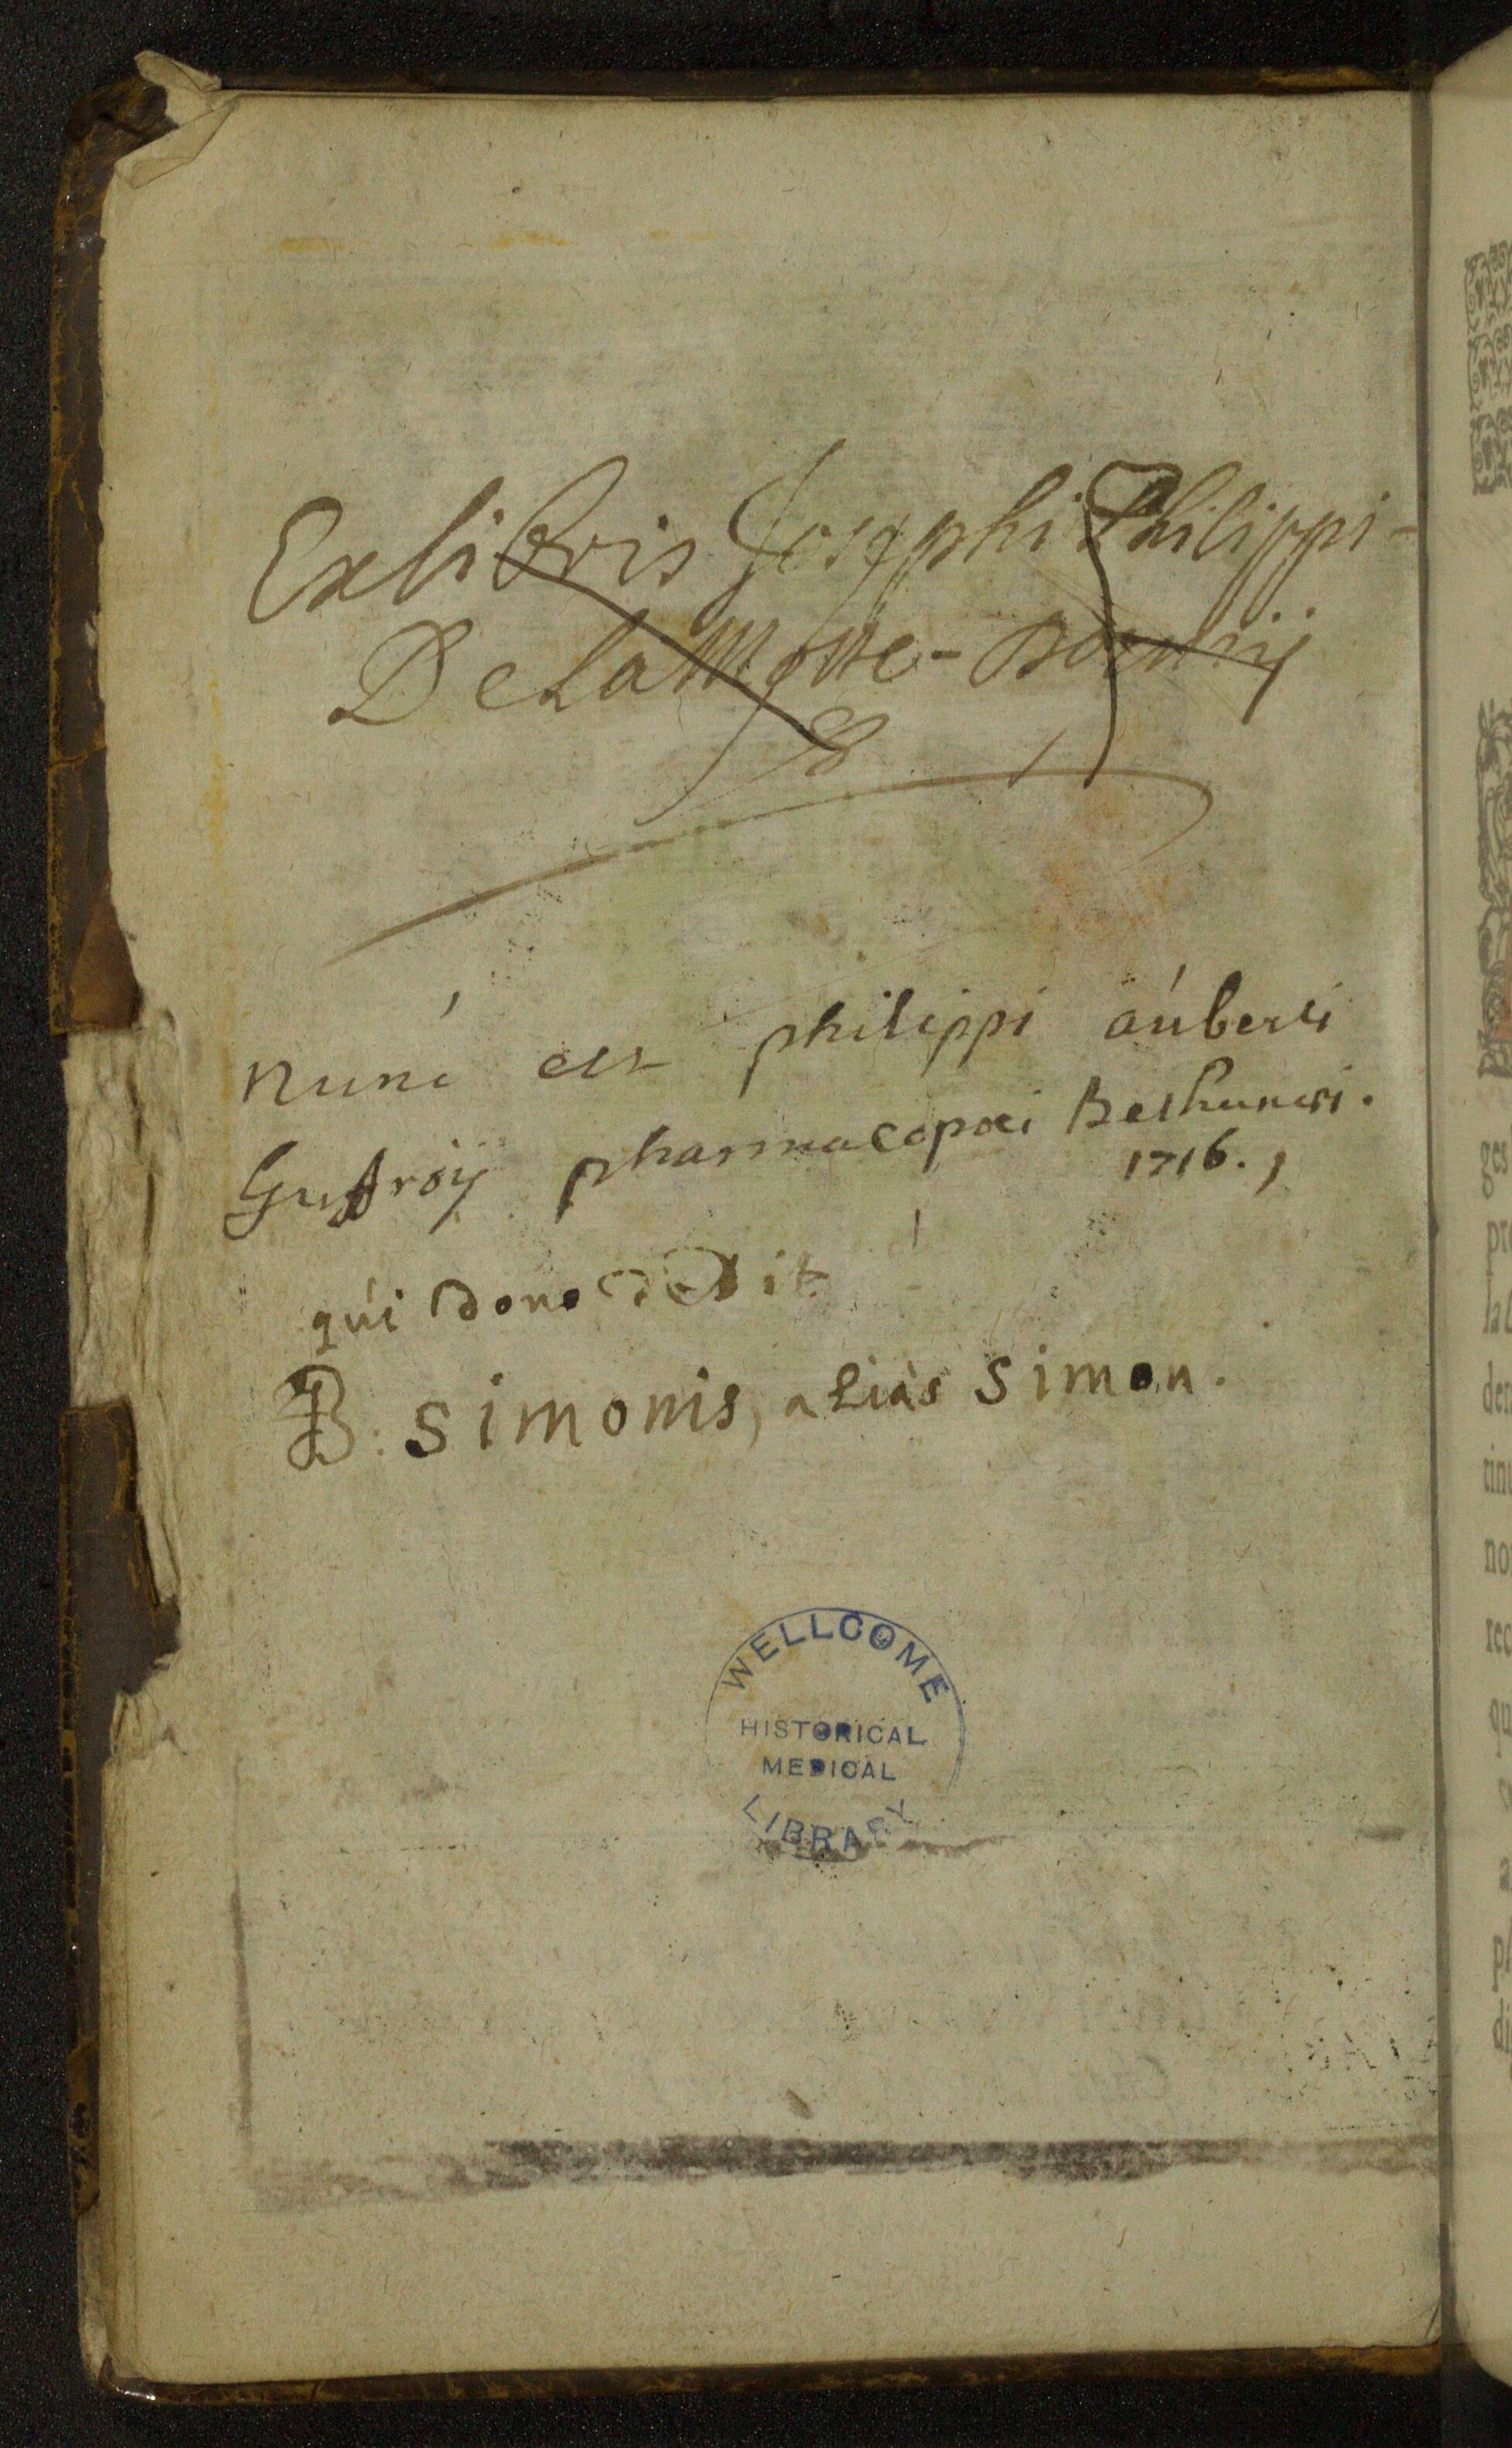 Ex libris Josephi Philippi-
De La Motte-
nunc est philippi auberti
Guffroij pharmacopoei Bethuniensi.
1716.,
qui dono dedit
B: Simonis, alias Simon.
WELLCOME
HISTORICAL
MEDICAL
LIBRARY